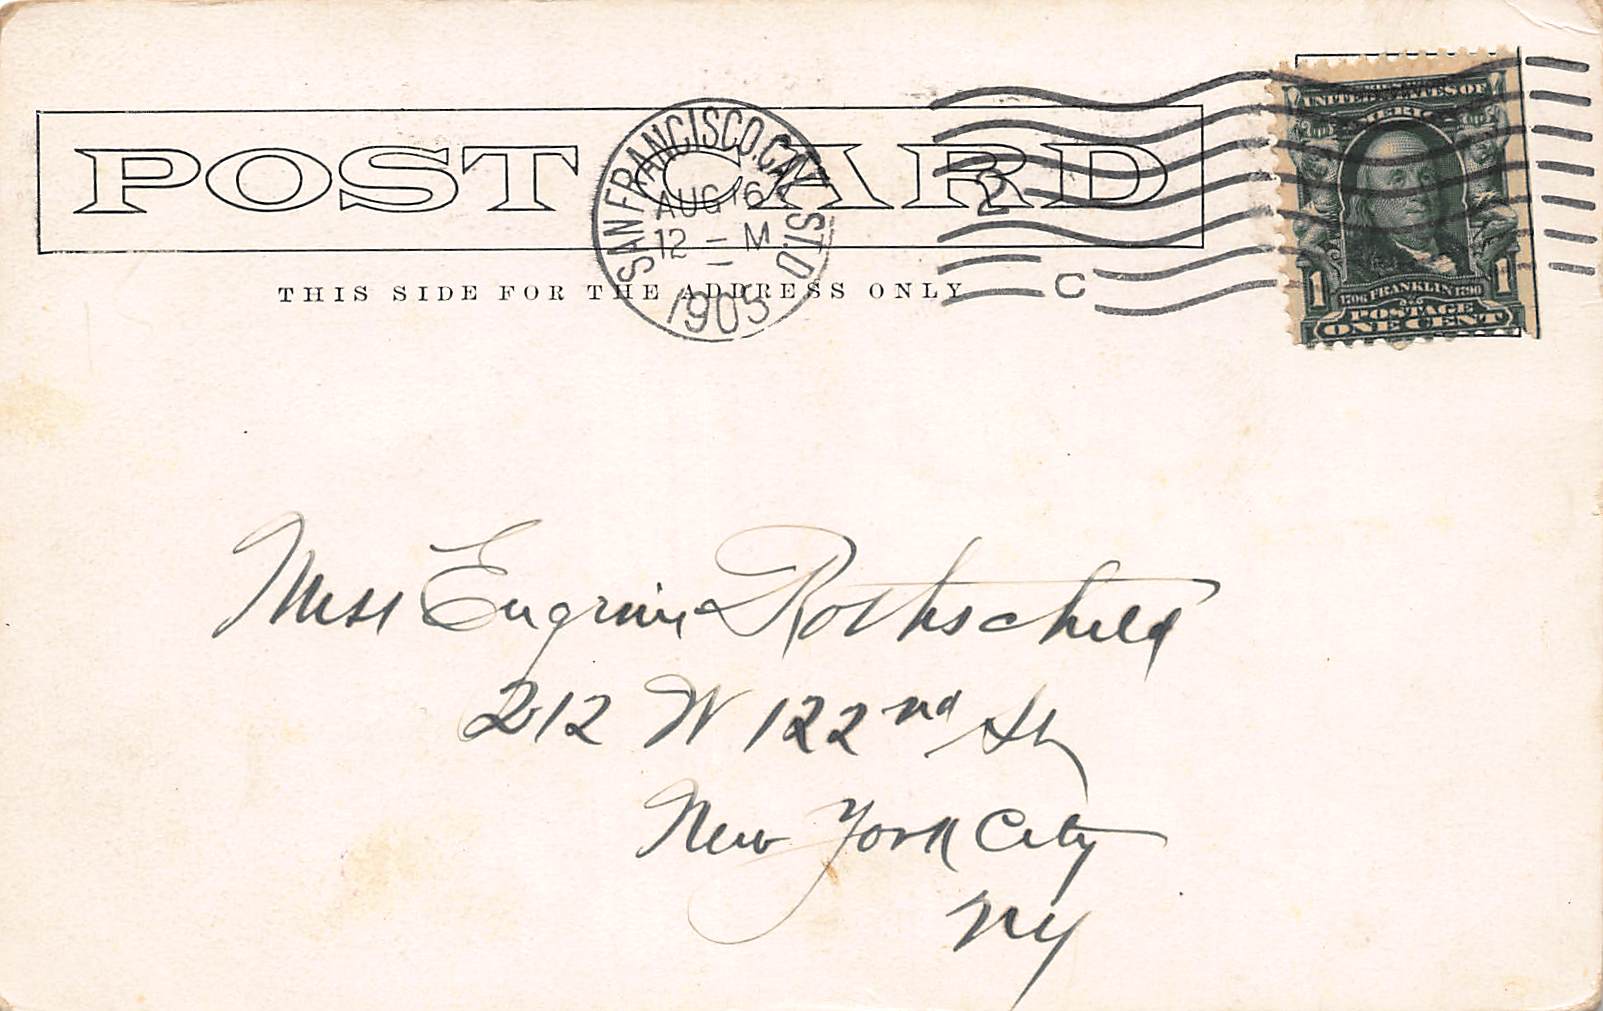 POST CARD
THIS SIDE FOR THE ADDRESS ONLY
SAN FRANCISCO, CAL. ST. D
AUG 16
12 - M
1905
2
C
UNITED STATES OF
AMERICA
1 1706 FRANKLIN 1790 1
POSTAGE
ONE CENT
Miss Eugenie Rothschild
212 W 122nd St
New York City
NY